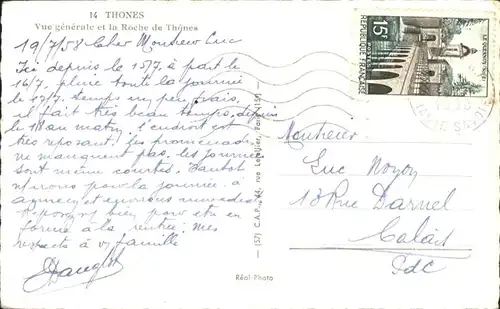 14 THONES
Vue générale et la Roche de Thônes
19/7/58 Cher Monsieur Luc
Ici depuis le 15/7 à part le
16/7, pluie toute la journée
le 17/7 temps un peu frais,
il fait très beau temps, depuis
le matin, l'endroit est
très reposant. les promenades
ne manquent pas, les journées
sont même courtes.
nous irons pour la journée à
annecy et
bien pour être en
forme à la rentrée; mes
respects à v/ famille
(57) C.A.P. - 44, rue Letellier, Paris (15e)
Réal-Photo
15F
REPUBLIQUE FRANÇAISE
LE QUESNOY NORD
Monsieur
Luc Noyon
13 Rue Darnel
Calais
PdC